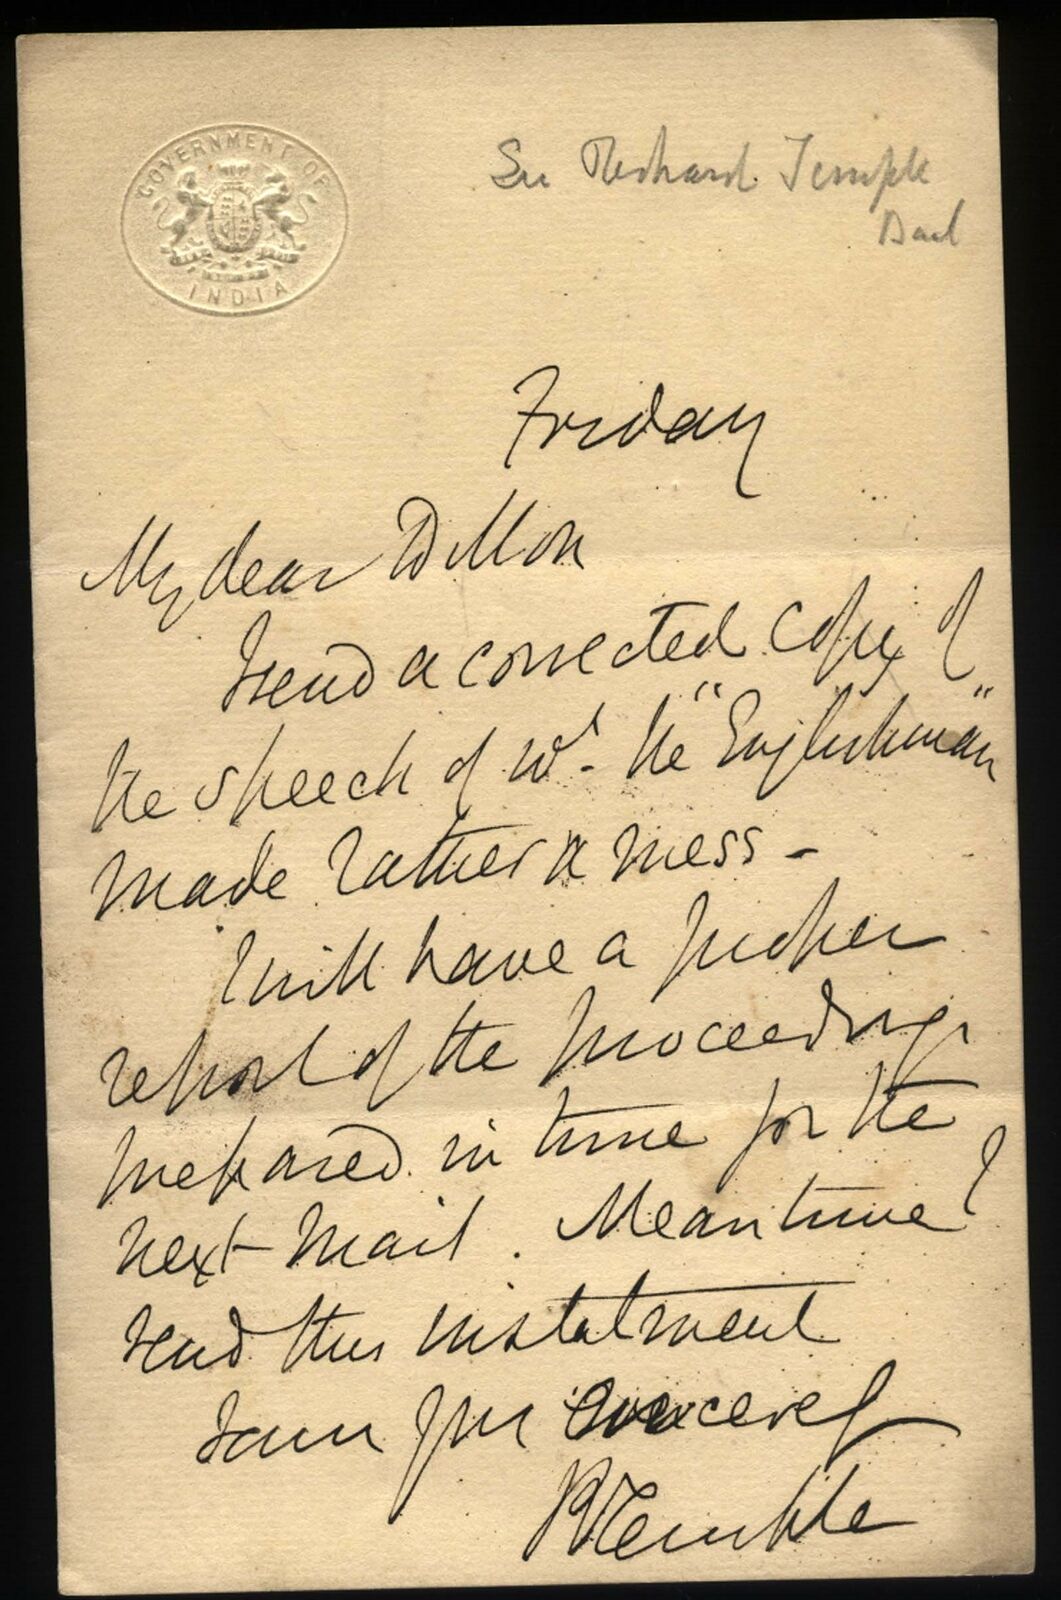 GOVERNMENT OF
INDIA
Sir Richard Temple
Bart
Friday
My dear Dillon
I send a corrected copy of
the speech of wh. the "Englishman"
made rather a mess -
I will have a proper
report of the proceedings
prepared in time for the
next mail. Meantime I
send this instalment
I am yrs sincerely
R Temple